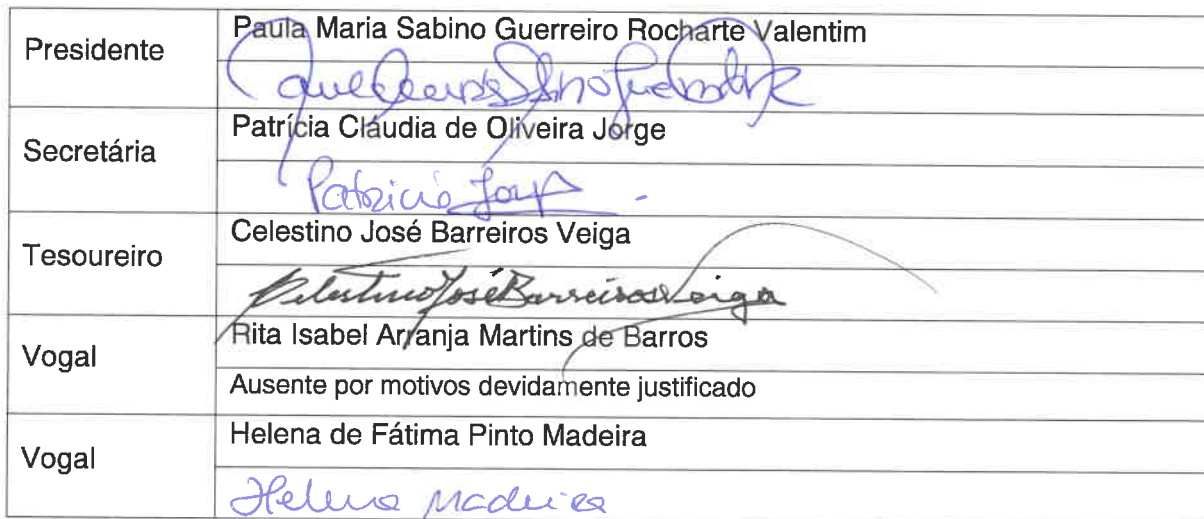 Presidente
Paula Maria Sabino Guerreiro Rocharte Valentim
Secretária
Patrícia Cláudia de Oliveira Jorge
Patricia Jorge
Tesoureiro
Celestino José Barreiros Veiga
Celestino José Barreiros Veiga
Vogal
Rita Isabel Arranja Martins de Barros
Ausente por motivos devidamente justificado
Vogal
Helena de Fátima Pinto Madeira
Helena Madeira